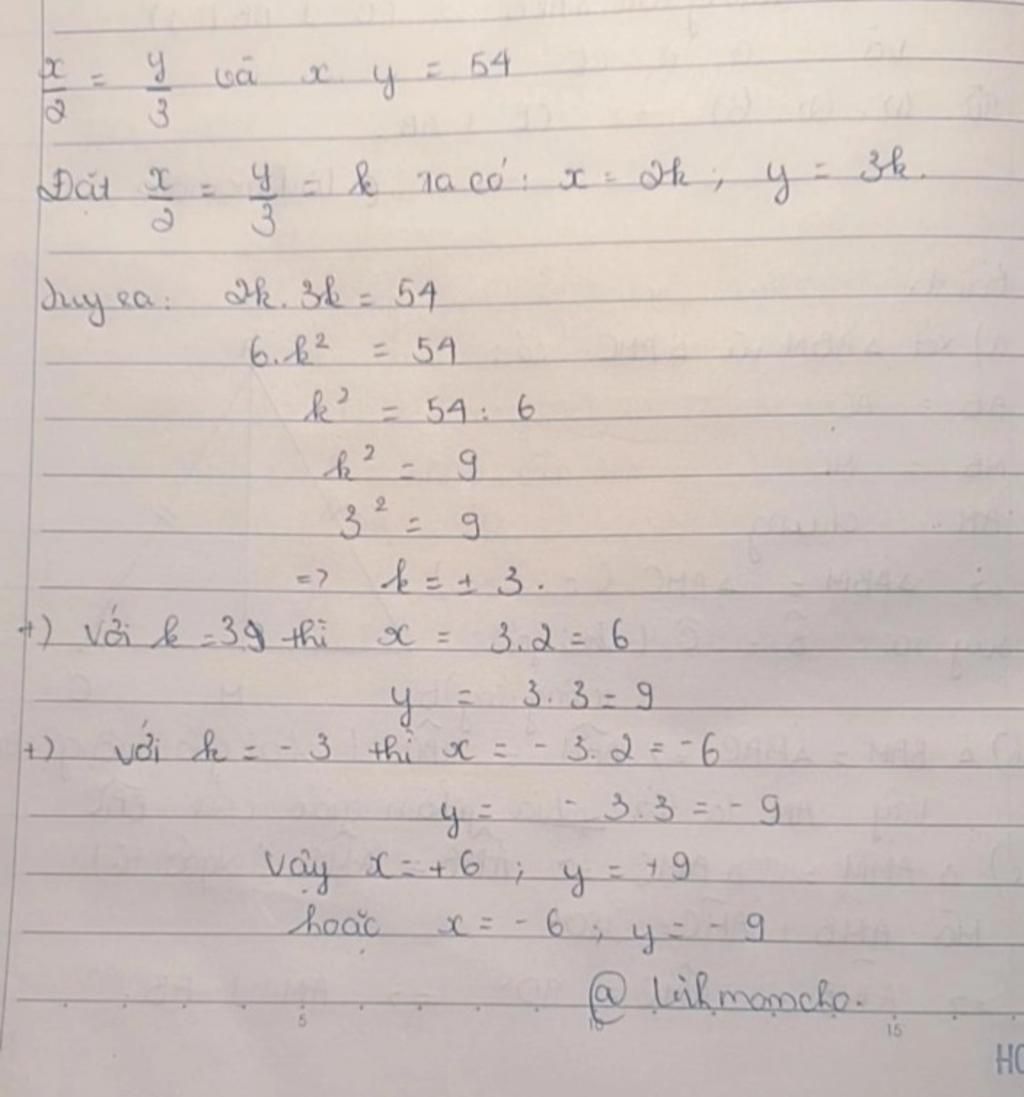 x/2 = y/3 và x. y = 54
Đặt x/2 = y/3 = k ta có: x = 2k; y = 3k.
Suy ra: 2k. 3k = 54
6.k² = 54
k² = 54: 6
k² = 9
3² = 9
=> k = ± 3.
+) Với k = 39 thì x = 3.2 = 6
y = 3.3 = 9
+) với k = - 3 thì x = - 3.2 = -6
y = - 3.3 = - 9
Vậy x = +6; y = +9
hoặc x = - 6; y = - 9
5
10
15
HO